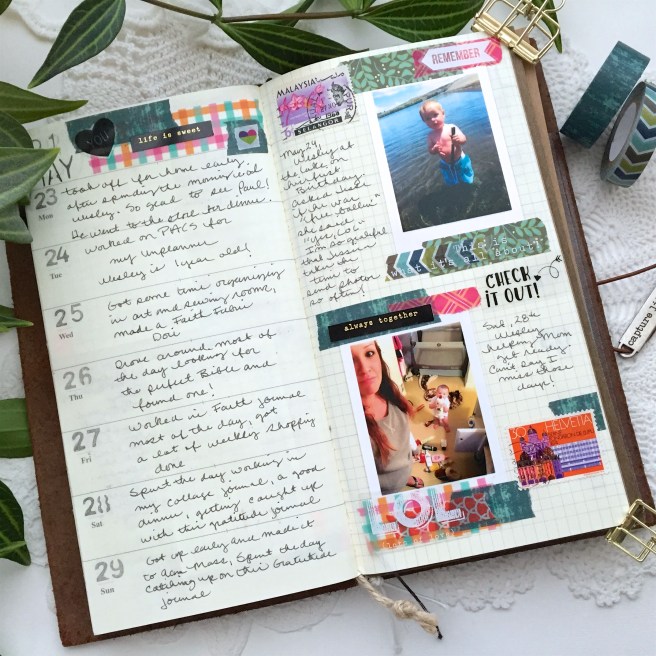 21
MAY
you
life is sweet
23
Mon
took off for home early,
after spending the morning w/
Wesley. So glad to see Paul!
We went to the store for dinner.
24
Tue
worked on PACS for
my Unplanner
Wesley is 1 year old!
25
Wed
Got some time organizing
in art and sewing rooms,
made a Faith Fabric
Dori
26
Thu
Drove around most of
the day looking for
the perfect Bible and
found one!
27
Fri
Worked in Faith Journal
most of the day, got
a lot of weekly shopping
done
28
Sat
Spent the day working in
my collage journal, a good
dinner, getting caught up
with this gratitude journal
29
Sun
Got up early and made it
to 9am Mass, Spent the day
catching up on this Gratitude
journal
MALAYSIA
SELANGOR
REMEMBER
May 24,
Wesley at
the lake, on
his first
Birthday.
asked Jessi
if he was
"free ballin'"
she said
"yes, LOL"
I'm so grateful
that Jessi
takes the
time to
send photos
so often!
This is
what it's all about!
CHECK
IT OUT!
always together
Sat, 28th
Wesley
helping Mom
get ready.
Can't say I
miss those
days!
30
HELVETIA
LOL
capture li